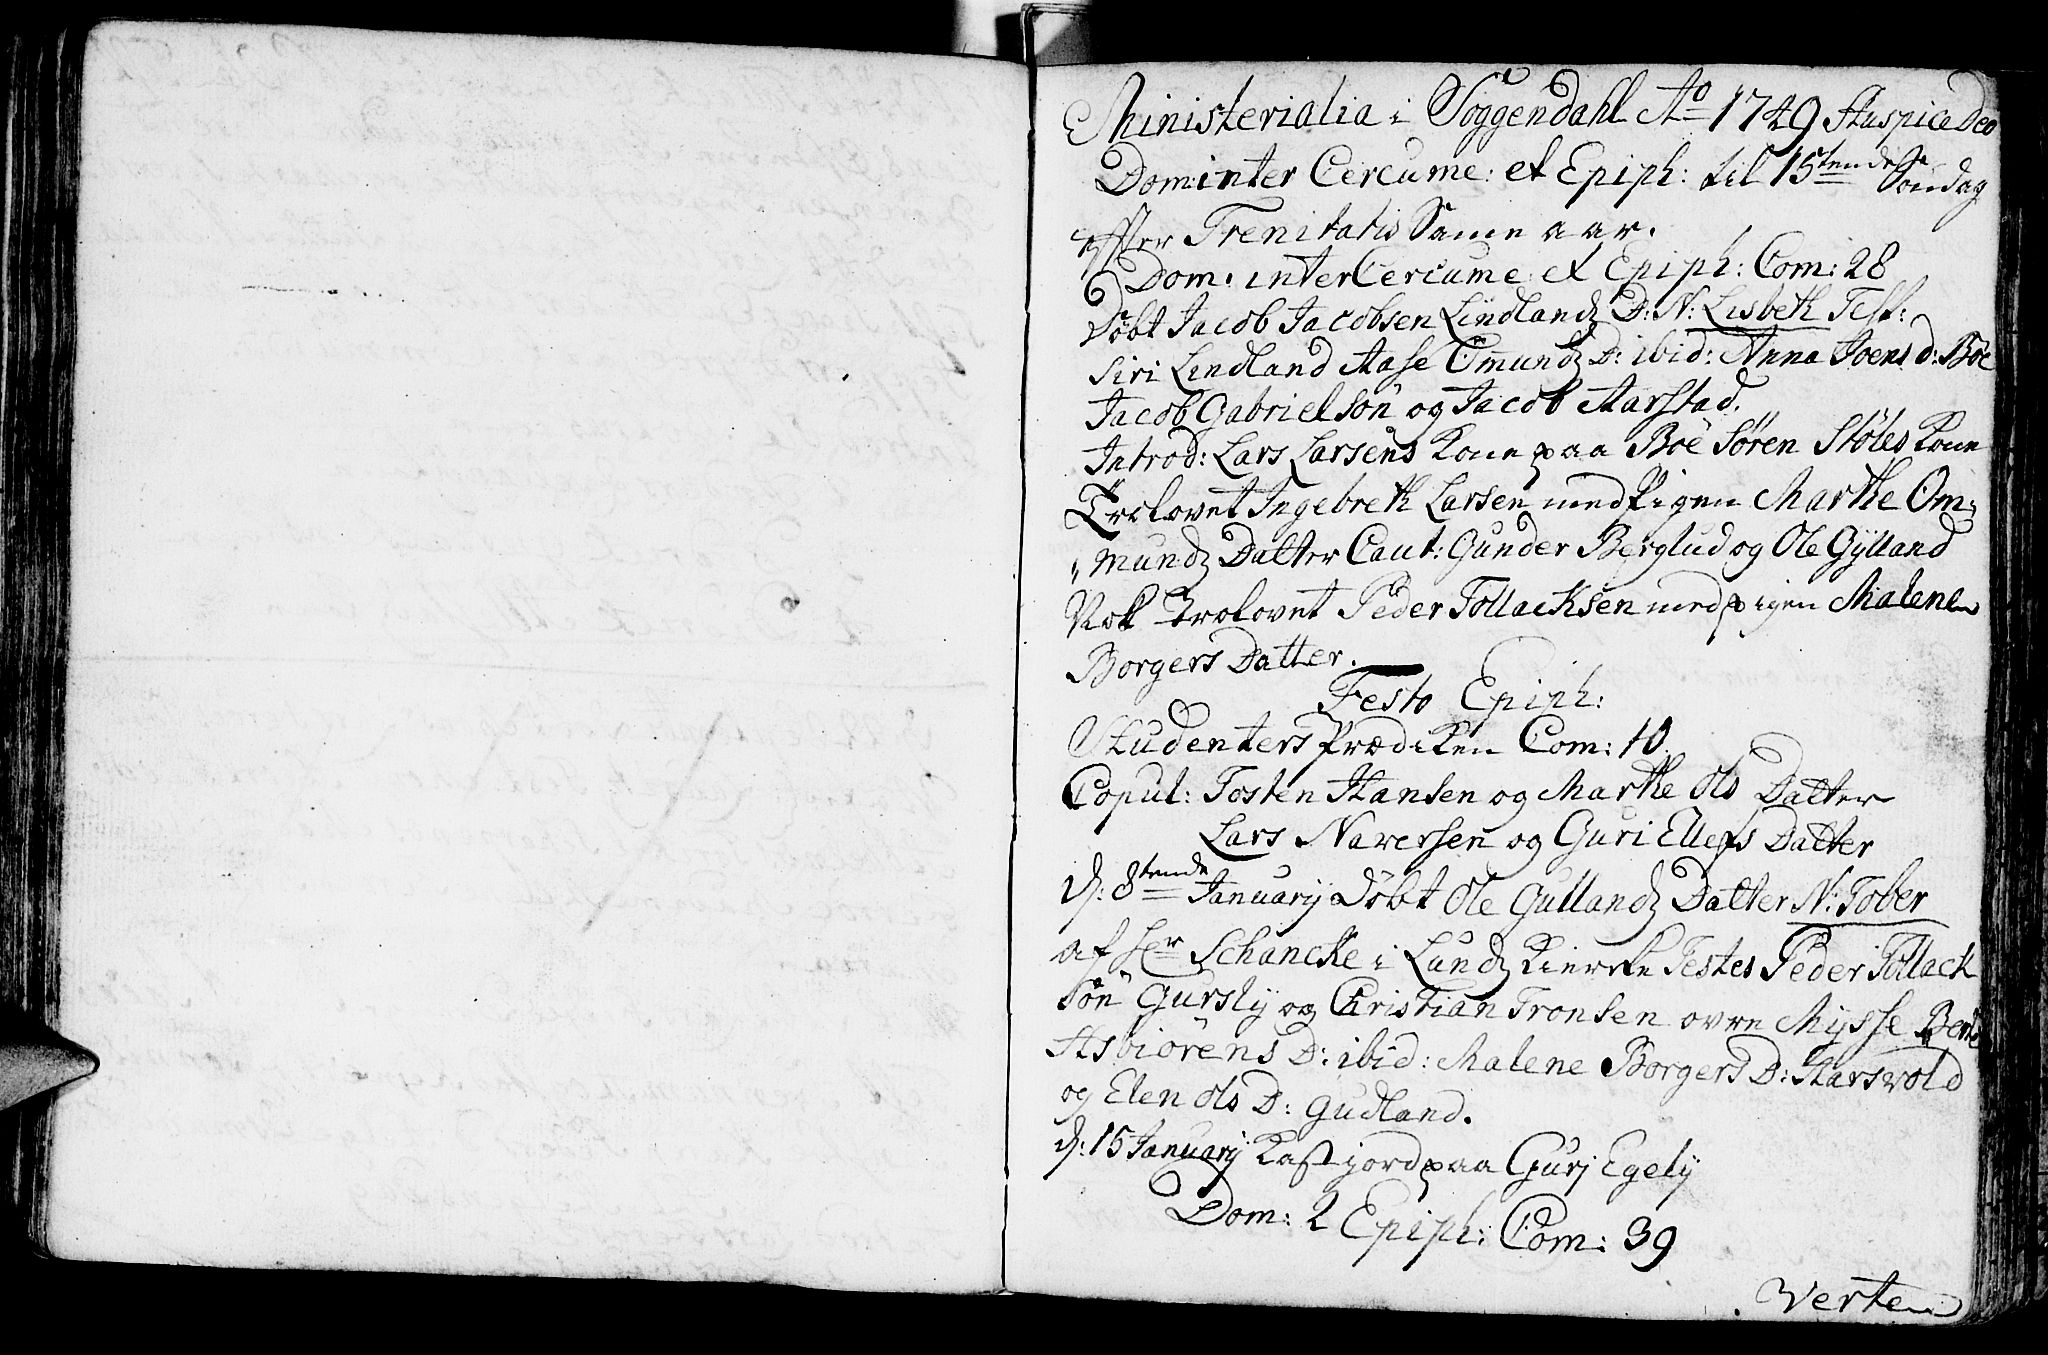 Ministerialia i Soggendahl Ao 1749 Auspice Deo
Dom: inter Cercume: et Epiph: til 15tende Søndag
efter Trenitatis Same aar.
Dom. inter Cercume: et Epiph: Com: 28
Døbt Jacob Jacobsen Lindlandz D: N: Lisbeth Test:
Siri Lindland Aase Omundz D: ibid: Anna Joens d: Böe
Jacob Gabrielsön og Jacob Aarstad.
Introd: Lars Larsens Kone paa Böe Sören Stöles Kone
Trolovet Ingebreth Larsen med Pigen Marthe Om„
„mundz Datter Caut: Gunder Berglud og Ole Gylland
Nok Trolovet Peder Tollacksen med pigen Malene
Borgers Datter.
Festo Epiph:
Studenters Prædiken Com: 10.
Copul: Tosten Hansen og Marthe Ols Datter
Lars Narersen og Guri Ellefs Datter
d: 8tende Januarij Döbt Ole Gullandz Datter N: Tober
af Hr Schancke i Lundz Kierke Testes Peder Tollack
sön Gursly og Christian Tronsen ovre Mysse Berte
Asbiörens D: ibid: Malene Borgers D: Aarsvold
og Elen Ols D: Gudland.
d: 15 Januarij Kast jord paa Guri Egely
Dom: 2 Epiph: Com: 39
Verte